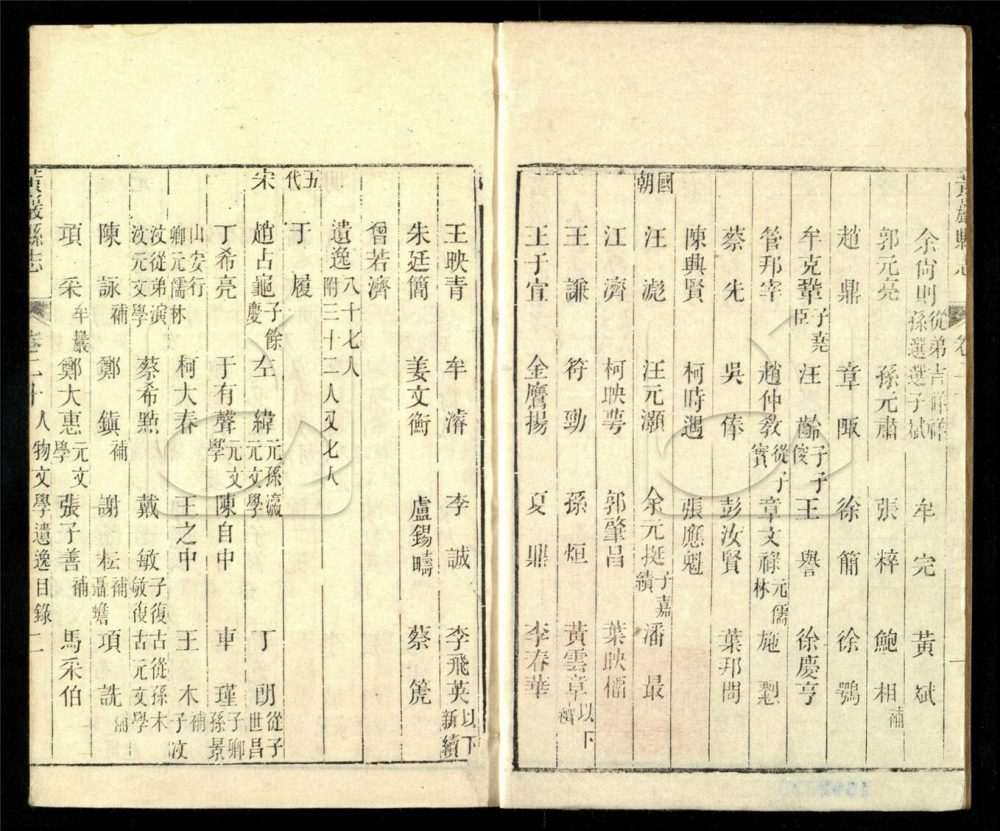 余尙則從弟吉祥祥孫選選子斌 牟完 黃斌
郭元亮 孫元肅 張梓 鮑相補
趙鼎 章陬 徐簡 徐鶚
牟克鞏子堯臣 汪齡子子俊 王譽 徐慶亨
管邦宰 趙仲敎從子實 章文祿元儒林 施
蔡先 吳俸 彭汝賢 葉邦問
陳興賢 柯時遇 張應魁
國朝
汪漋 汪元灝 余元挺子嘉績 潘最
江濟 柯映萼 郭肇昌 葉映
王謙 符勁 孫烜 黃雲章以下續
王于宣 金鷹揚 夏鼎 李春華
王映青 牟濬 李誠 李飛英以下新續
朱廷簡 姜文衡 盧錫疇 蔡箎
曾若濟
遺逸八十七人附三十二人又七人
五代 于履
宋 趙占龜子餘慶 左緯元孫瀛元文學 丁朗從子世昌
丁希亮 于有聲元文學 陳自中 車瑾子卿孫景
山安行卿元儒林 柯大春 王之中 王木補子汶
汶從弟演汶元文學 蔡希點 戴敏子復古從孫木敏復古元文學
陳詠補 鄭鎮補 謝耘補聶蟾 項詵補
項采牟巖 鄭大惠元文學 張子善補 馬采伯
黃巖縣志 卷二十 人物文學遺逸目錄 二